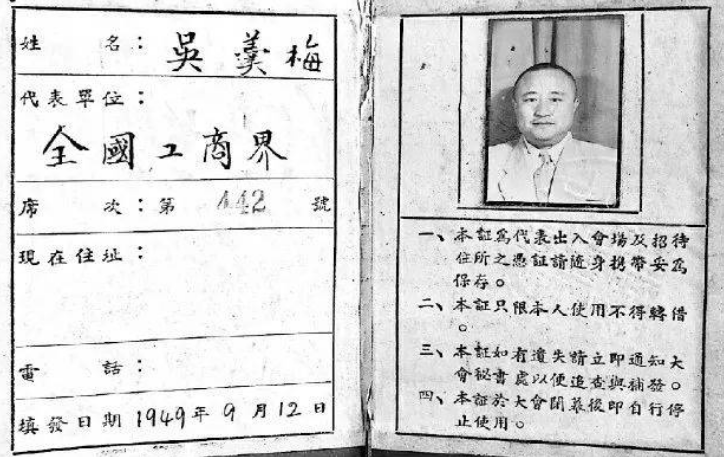 姓 名：吳羹梅
代表單位：
全國工商界
席 次：第 442 號
現在住址：
電 話：
填發日期 1949年9月12日
一、本証為代表出入會場及招待
住所之憑証請隨身携帶妥為
保存。
二、本証只限本人使用不得轉借
。
三、本証如有遺失請立即通知大
會秘書處以便追查與補發。
四、本証於大會閉幕後即自行停
止使用。